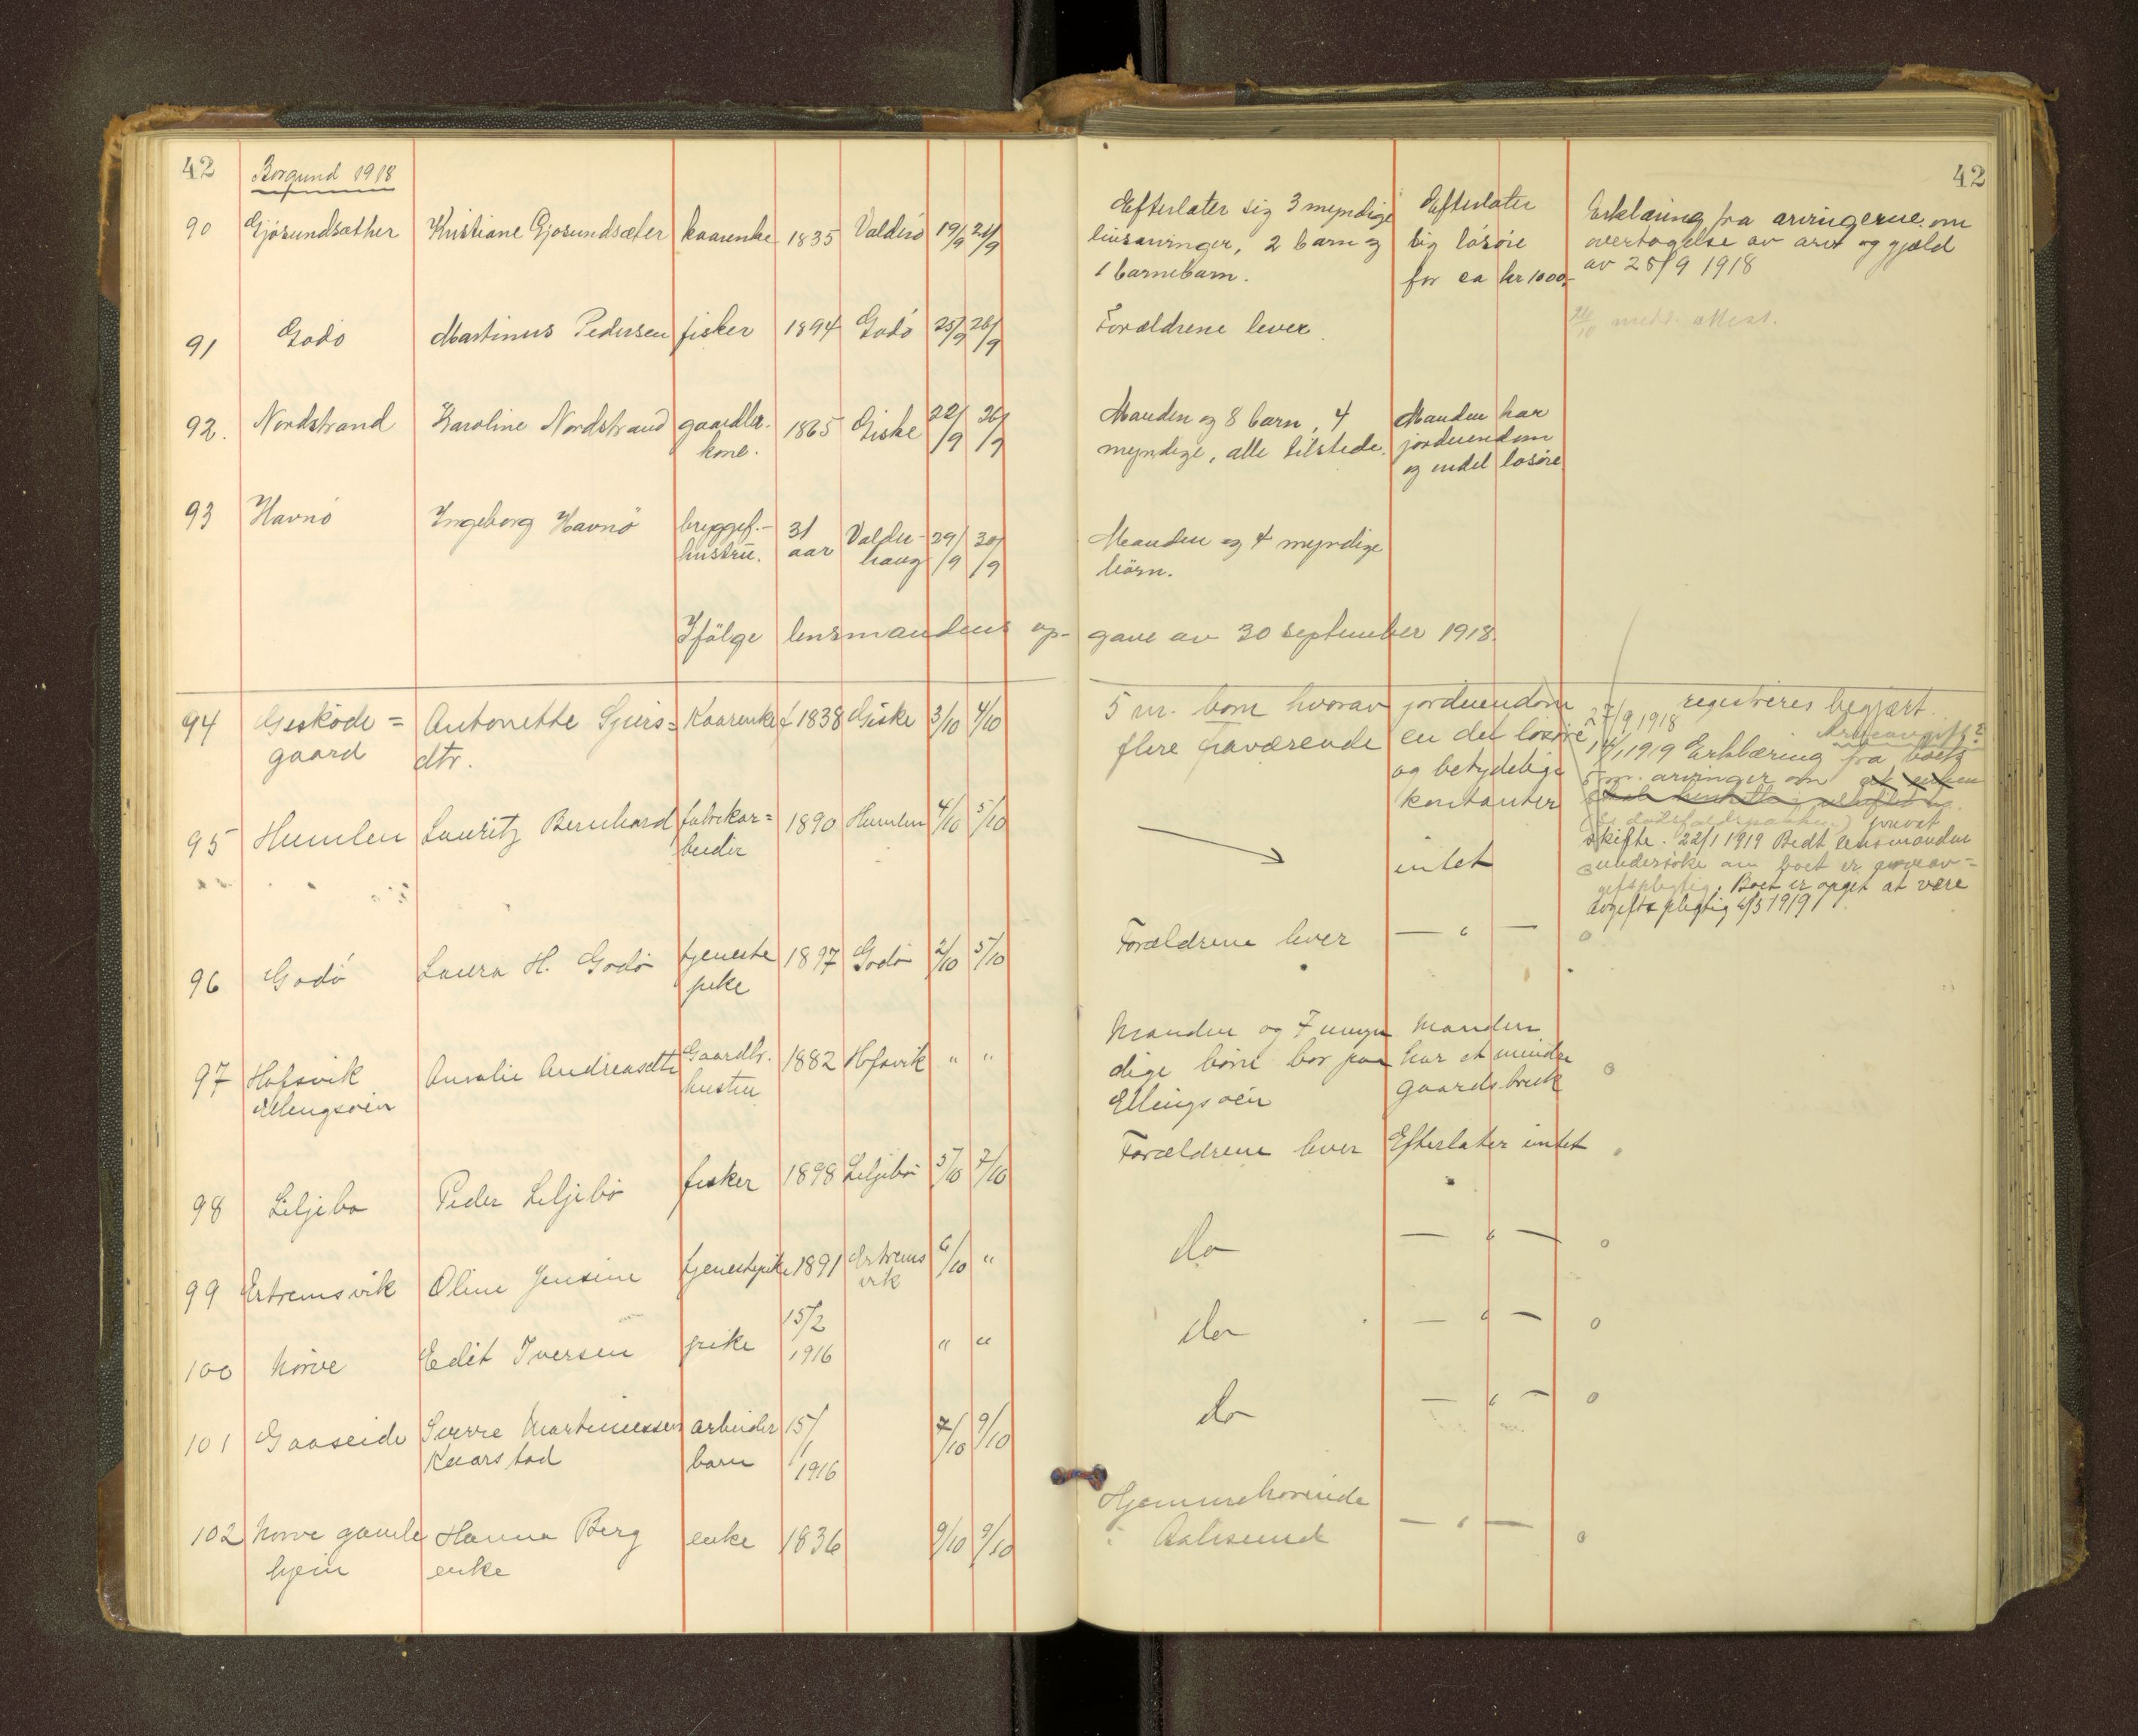 42
Borgund 1918
42
90 Gjøsundsæther Kristiane Gjøsundsæter kaarenke 1835 Valderø 19/9 21/9 Efterlater sig 3 myndige Efterlater Erklæring fra arvingerne om
livsarvinger, 2 barn og sig løsøre overtagelse av arv og gjæld
1 barnebarn. for ca kr 1000,- av 25/9 1918
91 Godø Martinus Pedersen fisker 1894 Godø 25/9 28/9 Forældrene lever 26/10 medd. attest.
92. Nordstrand Karoline Nordstrand gaardbr. 1865 Giske 22/9 26/9 Manden og 8 barn, 4 Manden har
kone. myndige, alle tilstede. jordeiendom
og endel løsøre
93 Havnø Ingeborg Havnø bryggef.- 31 Valder- 29/9 30/9 Manden og 4 myndige
hustru. aar haug børn.
Ifølge lensmandens op- gave av 30 september 1918.
94 Geskøde = Antonette Sjurs= Kaarenke f 1838 Giske 3/10 4/10 5 m. børn hvorav jordeiendom 27/9 1918 registreres begjært.
gaard dtr. flere fraværende en del løsøre Arveavgift?
og betydelige 14/1 1919 Erklæring fra boets
kontanter 5 m. arvinger om
privat
95 Humlen Lauritz Bernhard fabrikar= 1890 Humlen 4/10 5/10 intet skifte. 22/1 1919 Bedt lensmanden
beider undersøke om boet er arveav=
giftspligtig. Boet er opget at være
avgiftspligtig 6/5 1919
96 Godø Laura H. Godø tjeneste 1897 Godø 2/10 5/10 Forældrene lever — " — o
pike
97 Hofsvik Amalie Andreasdtr Gaardbr. 1882 Hofsvik " " Manden og 7 umyn Manden
Ellingsøen hustru dige børn bor paa har et mindre o
Ellingsøen gaardsbruk
98 Liljebø Peder Liljebø fisker 1898 Liljebø 5/10 7/10 Forældrene lever Efterlater intet
99 Ertremsvik Oline Jensine tjenestepike 1891 Ertrems 6/10 " do — " — o
vik
100 Nørve Edit Iversen pike 15/2 " " do — " — o
1916
101 Gaaseide Sverre Martinussen arbeider 15/1 7/10 9/10 do — " — o
Kaarstad barn 1916
102 Nørve gamle Hanna Berg enke 1836 9/10 9/10 Hjemmehørende — " — o
hjem enke i Aalesund